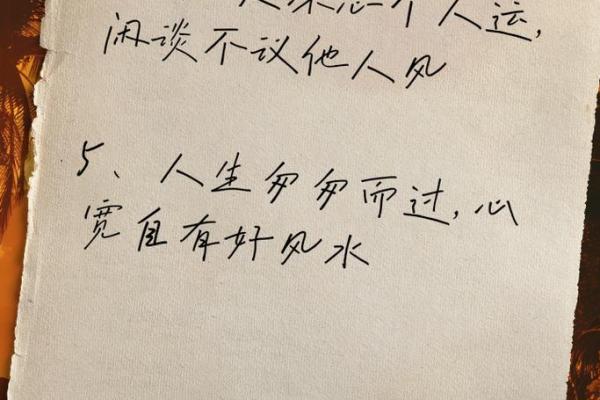 个人运,
闲谈不议他人风
5、人生匆匆而过,心
宽自有好风水